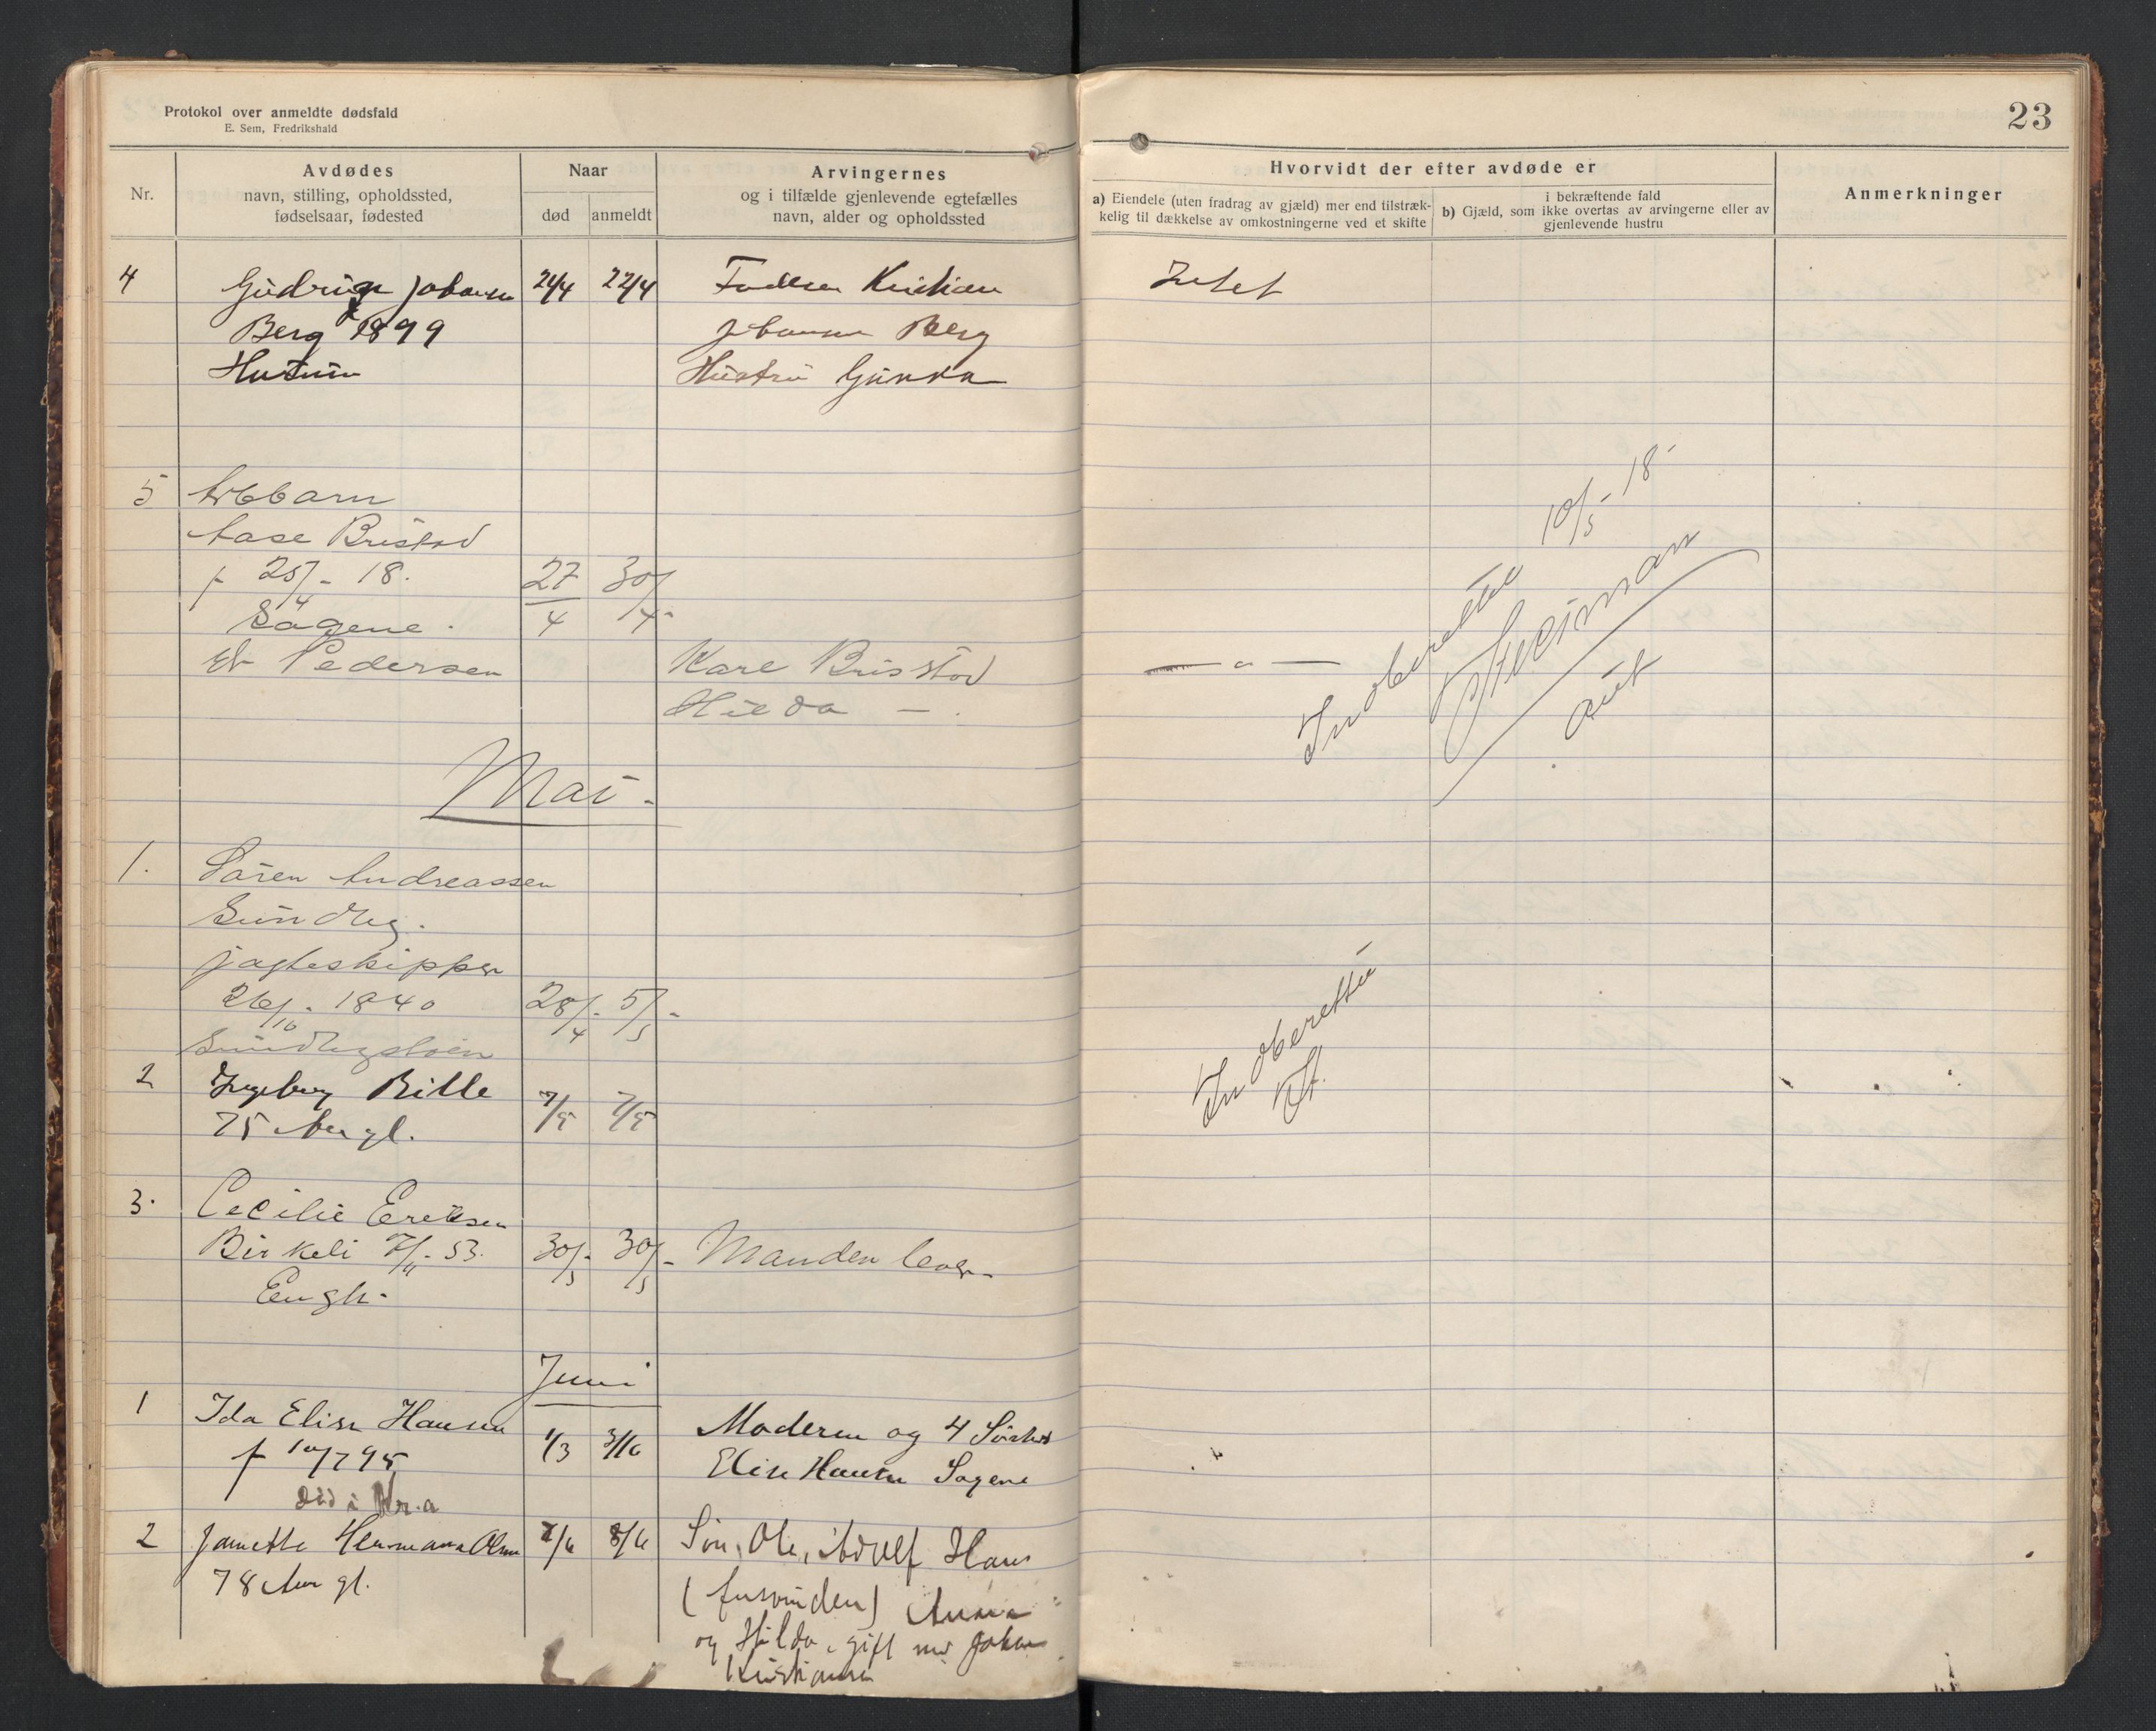 Protokol over anmeldte dødsfald
E. Sem, Fredrikshald
23
Nr.
Avdødes
navn, stilling, opholdssted,
fødselsaar, fødested
Naar
død
anmeldt
Arvingernes
og i tilfælde gjenlevende egtefælles
navn, alder og opholdssted
Hvorvidt der efter avdøde er
a) Eiendele (uten fradrag av gjæld) mer end tilstræk-
kelig til dækkelse av omkostningerne ved et skifte
i bekræftende fald
b) Gjæld, som ikke overtas av arvingerne eller av
gjenlevende hustru
Anmerkninger
4 Gudrun Johansen 21/4 22/4 Kristian Intet
Berg 1899 Johansen Berg
Hustru Gunda
5
Aase Bristad
f 25/4 - 18. 27/4 30/4-
Sagene.
Pedersen Kare Brisstod — " —
Hilda —.
10/5 - 18
Mai.
1. Søren Andreassen
Sundløg.
jagteskipper
26/10 - 1840 28/4 - 5/5 -
2 Ingeborg Bille 7/5 7/5
75 Aar gl.
3. Cecilie Eriksen
Birkeli 7/11 - 53. 30/5 - 30/5 - Manden lever
Engh.
Juni
1 Ida Elise Hansen 1/3 3/6 Moderen og 4
f 10/7 95 Elise Hansen Sagene
Død i Kr.a
2 Janette Hermana Olsen 7/6 8/6 Søn, Ole, Adolf Hans
78 Aar gl. (forsvunden) Anna
og Hilda, gift med Johan
Kristiansen